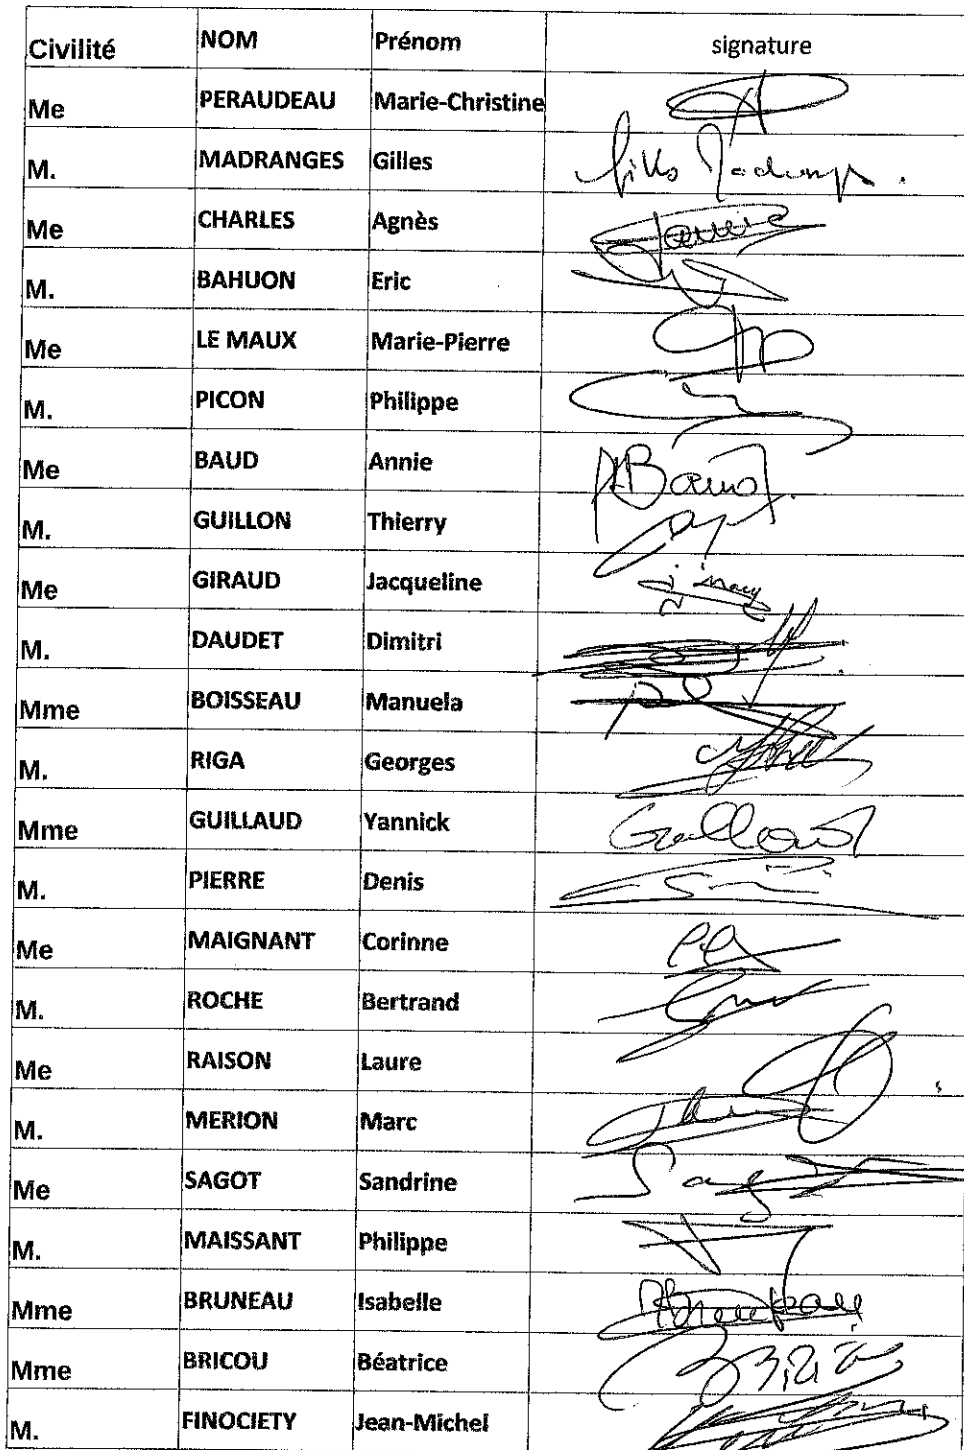 Civilité NOM Prénom signature
Me PERAUDEAU Marie-Christine
M. MADRANGES Gilles
Me CHARLES Agnès
M. BAHUON Eric
Me LE MAUX Marie-Pierre
M. PICON Philippe
Me BAUD Annie
M. GUILLON Thierry
Me GIRAUD Jacqueline
M. DAUDET Dimitri
Mme BOISSEAU Manuela
M. RIGA Georges
Mme GUILLAUD Yannick Guillaud
M. PIERRE Denis
Me MAIGNANT Corinne
M. ROCHE Bertrand
Me RAISON Laure
M. MERION Marc
Me SAGOT Sandrine
M. MAISSANT Philippe
Mme BRUNEAU Isabelle
Mme BRICOU Béatrice
M. FINOCIETY Jean-Michel